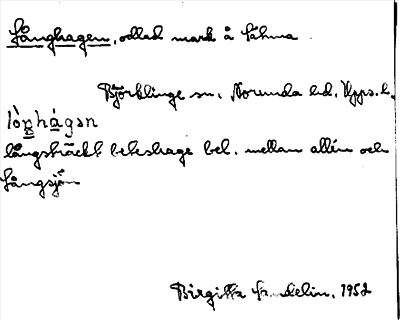 Långhagen, odlad mark å Sähma.
Björklinge sn, Norunda hd, Upps. l.
lòŋhágən
långsträckt beteshage bel. mellan allén och
Långsjön
Birgitta Sandelin, 1952